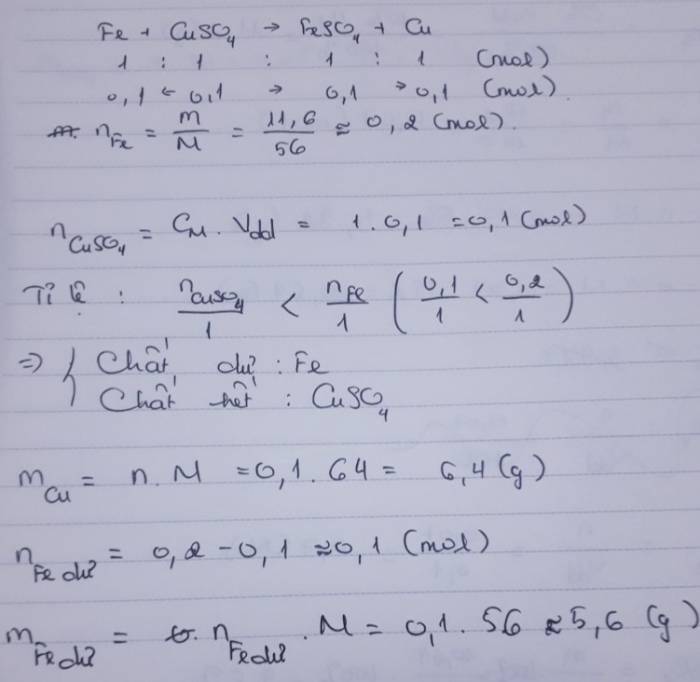 Fe + CuSO₄ → FeSO₄ + Cu
1 : 1 : 1 : 1 (mol)
0,1 ← 0,1 → 0,1 → 0,1 (mol)
n_Fe = m/M = 11,6/56 ≈ 0,2 (mol).
n_CuSO₄ = C_M . V_dd = 1 . 0,1 = 0,1 (mol)
Tỉ lệ : n_CuSO₄/1 < n_Fe/1 (0,1/1 < 0,2/1)
⇒ { Chất dư : Fe
Chất hết : CuSO₄
m_Cu = n . M = 0,1 . 64 = 6,4 (g)
n_Fe dư = 0,2 - 0,1 ≈ 0,1 (mol)
m_Fe dư = n_Fe dư . M = 0,1 . 56 ≈ 5,6 (g)